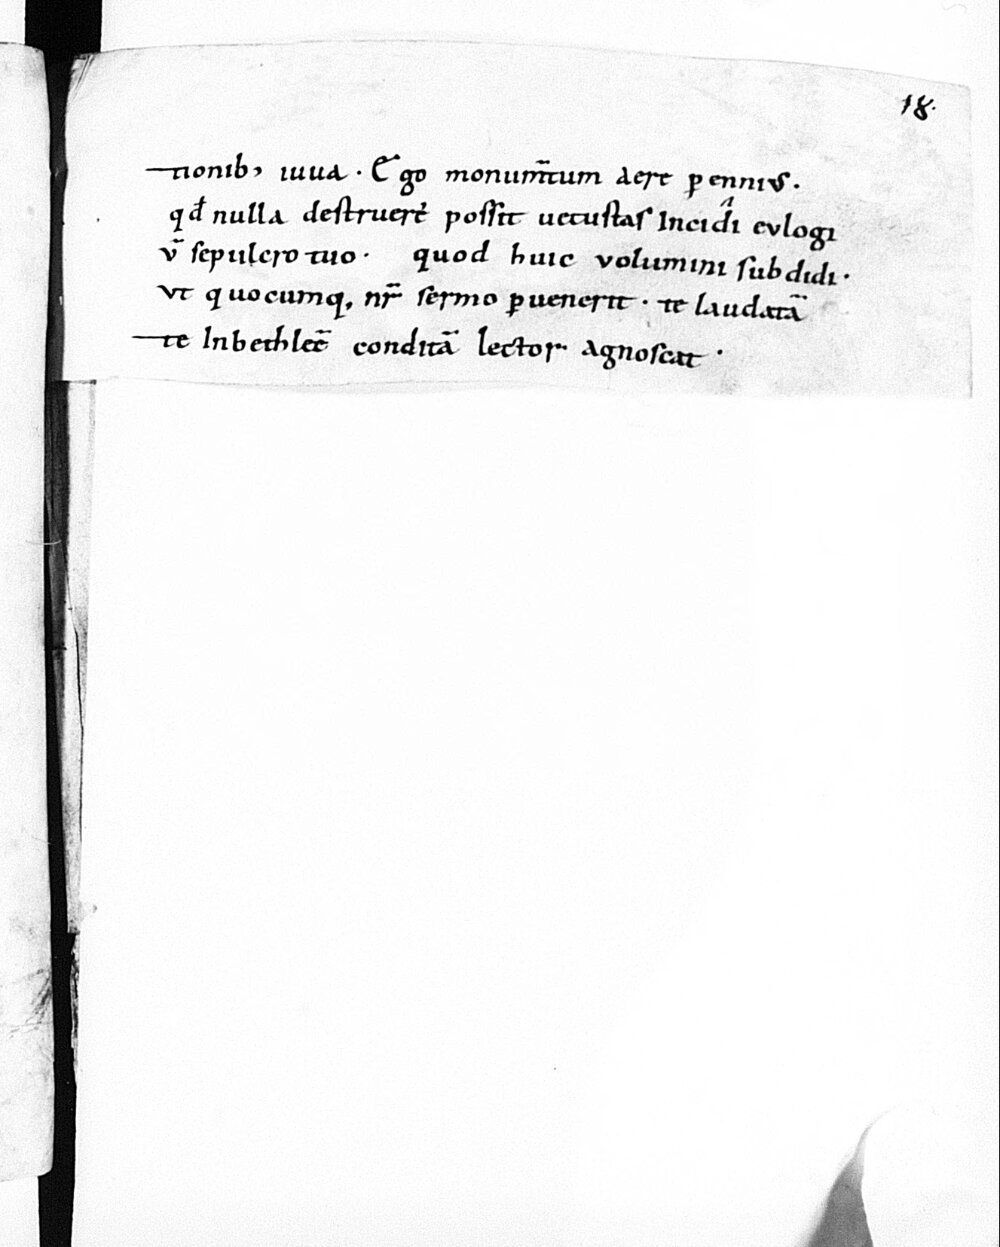 18.
tionib; iuua. Ego monum̄tum aere pennius.
qđ nulla destruere possit uetustas Incidi eulogi
ū sepulcro tuo. quod huic volumini subdidi.
vt quocumq; nr̄ sermo ꝑuenerit. te laudatā
te In bethleē conditā lector agnoscat.